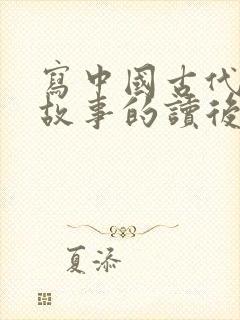 寫中國古代
故事的讀後
夏添